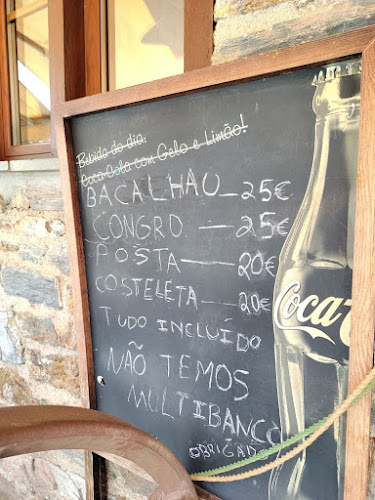 Bebida do dia:
Coca-Cola com Gelo e Limão!
BACALHAU — 25€
CONGRO — 25€
POSTA — 20€
COSTELETA — 20€
TUDO INCLUÍDO
NÃO TEMOS
MULTIBANCO
OBRIGADO
Coca